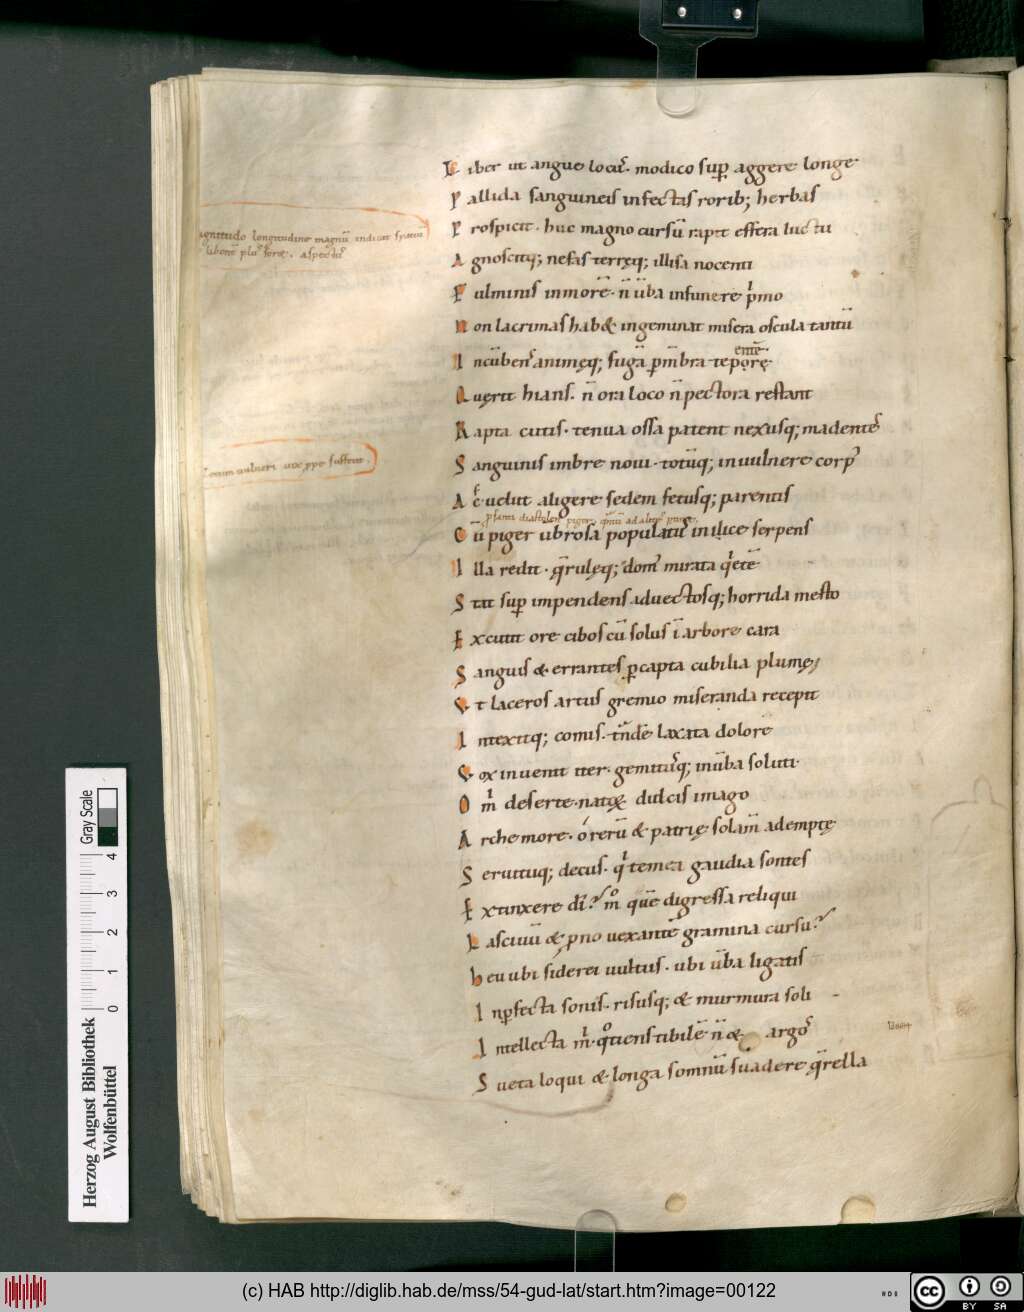 Liber ut angue locus. modico sup aggere longe
Pallida sanguineis infectas rorib; herbas
Prospicit. huc magno cursū rapit effera luctu
Agnoscitq; nefas terręq; illisa nocenti
Fulminis inmorē. n̄ ūba infunere pͥmo
Non lacrimas hab& ingeminat misera oscula tantū
Incūbens animęq; fugā pm̄bra tepo̧rę
entē
Querit hians. n̄ ora loco n̄ pectora restant
Rapta cutis. tenuia ossa patent nexusq; madentes
Sanguinis imbre noui. totūq; inuulnere corp᾿
Ac uelut aligere sedem fetusq; parentis
Cū piger ūbrosa populatus inilice serpens
Illa redit. qrulęq; dom᾿ mirata qͥetē
Stat sup impendens aduectosq; horrida mesto
Excutit ore cibos cū solus ī arbore cara
Sanguis & errantes pcapta cubilia plumę;
Ut laceros artus gremio miseranda recepit
Intexitq; comis. tn̄dē laxata dolorē
Vox inuenit iter. gemitusq; inūba soluti.
O mͥ deserte. natoȩ dulcis imago
Archemore. o rerū & patrię solam̄ ademptę
Seruitiiq; decus. qͥ temea gaudia sontes
Extinxere dī? mͦ quē digressa reliqui
Lasciuū & pno uexantē gramina cursu?
heu ubi siderei uultus. ubi ūba ligatis
Inpfecta sonis. risusq; & murmura soli
Intellecta mͥ. qͦtiens tibi lē n̄ &  argos
Sueta loqui & longa somnū suadere qrella
gnitudo longitudine magnū indicat
aspectus
uulneri uox ppe
Herzog August Bibliothek
Wolfenbüttel
0 1 2 3 4
Gray Scale
(c) HAB http://diglib.hab.de/mss/54-gud-lat/start.htm?image=00122
cc BY SA